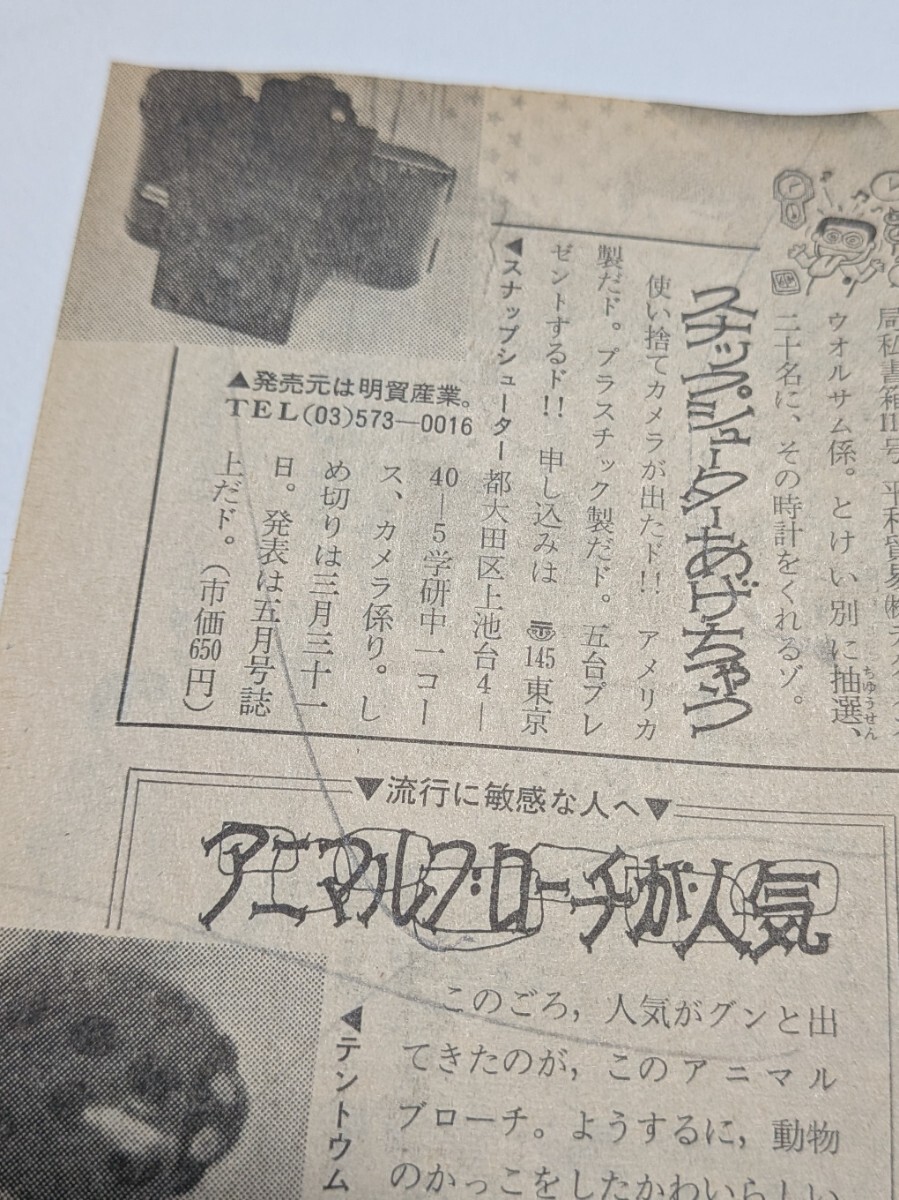 局私書箱111号 平和貿易㈱
ウオルサム係。とけい別に抽選、
ちゅうせん
二十名に、その時計をくれるゾ。
スナップシューターあげちゃう
使い捨てカメラが出たド!! アメリカ
製だド。プラスチック製だド。五台プレ
ゼントするド!! 申し込みは〠145東京
都大田区上池台4―
40―5学研中一コー
ス、カメラ係り。し
め切りは三月三十一
日。発表は五月号誌
上だド。(市価650円)
◀スナップシューター
▲発売元は明貿産業。
TEL(03)573―0016
▼流行に敏感な人へ▼
アニマルブローチが人気
このごろ，人気がグンと出
てきたのが，このアニマル
ブローチ。ようするに，動物
のかっこをしたかわいらしい
◀テントウム